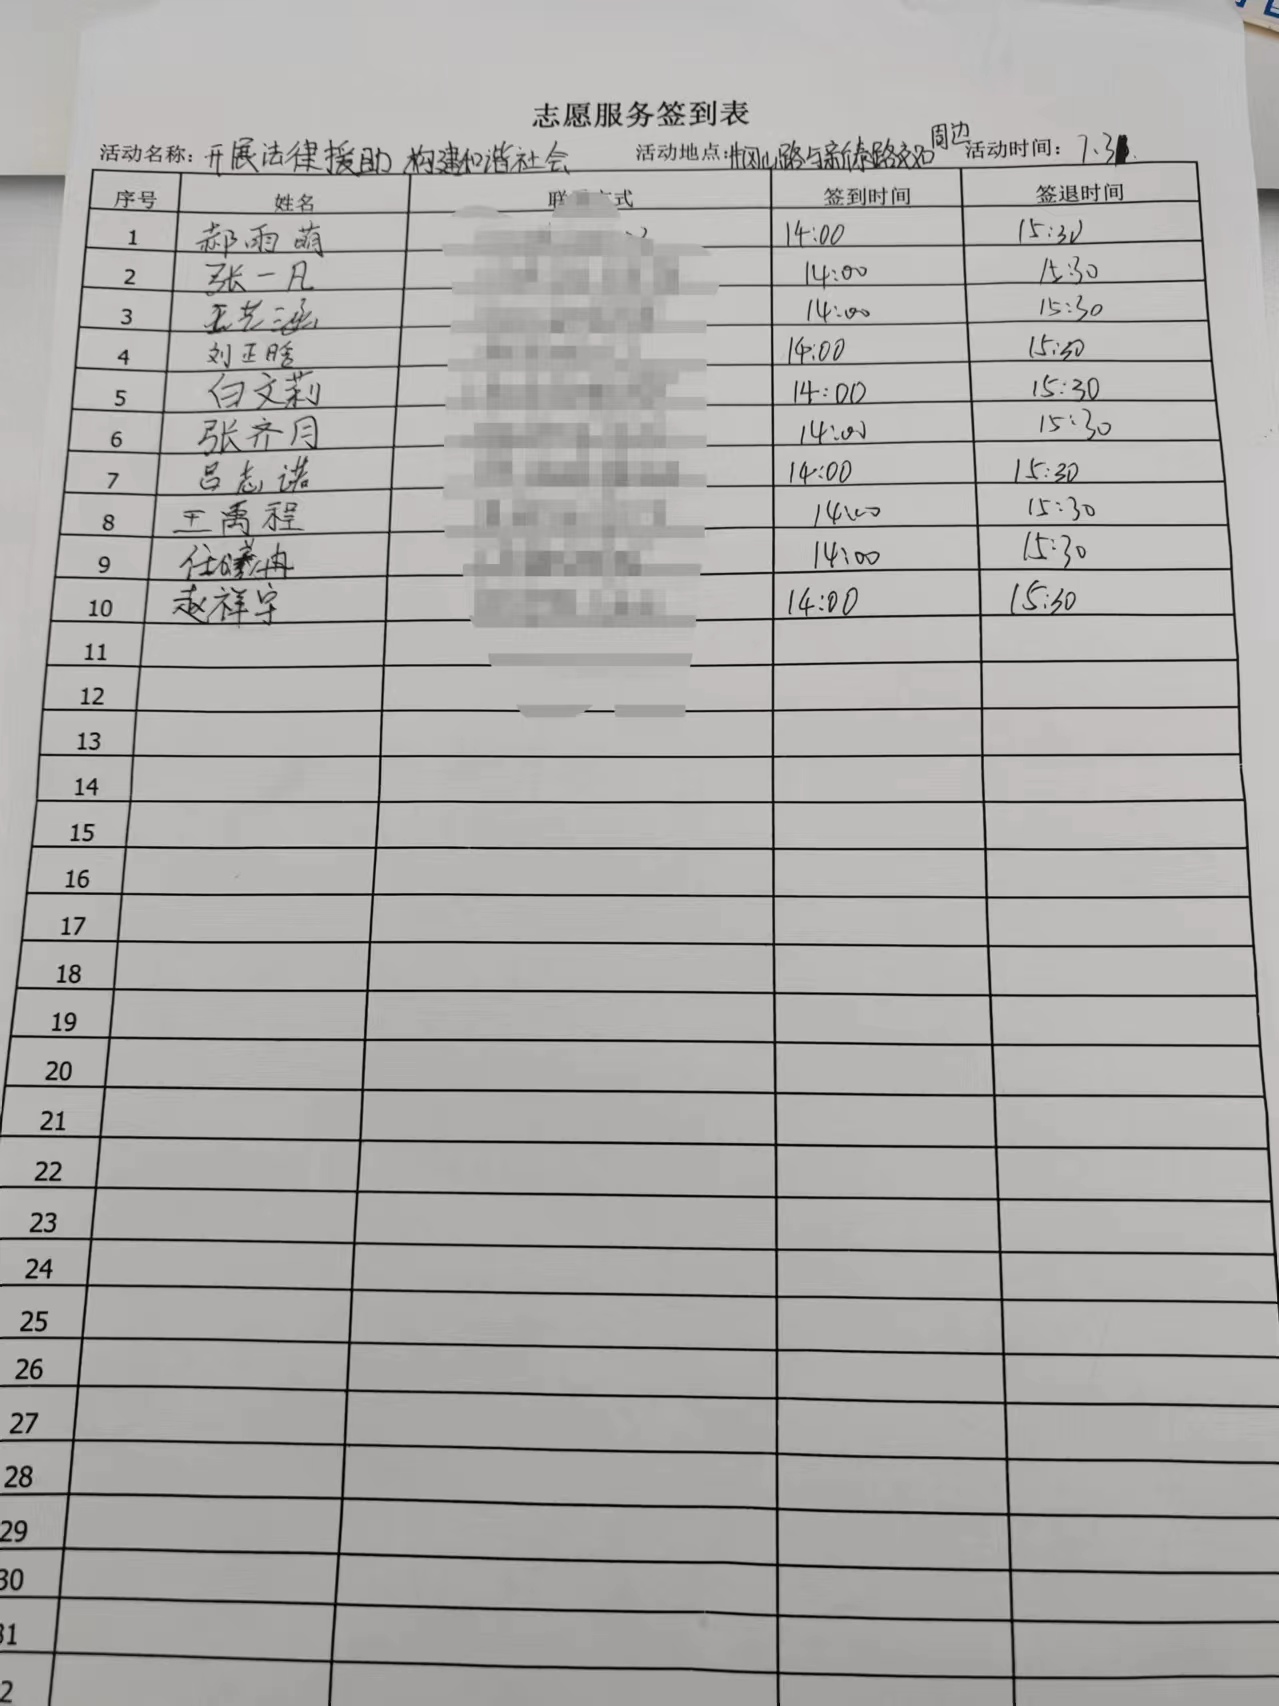 志愿服务签到表
活动名称：开展法律援助 构建和谐社会 活动地点：牡冈山路与新泰路交叉口周边 活动时间：7.3
序号 姓名 联 方式 签到时间 签退时间
1 郝雨萌 14:00 15:30
2 张一凡 14:00 15:30
3 王艺涵 14:00 15:30
4 刘正晗 14:00 15:30
5 白文莉 14:00 15:30
6 张齐月 14:00 15:30
7 吕志诺 14:00 15:30
8 王禹程 14:00 15:30
9 任曦冉 14:00 15:30
10 赵祥宇 14:00 15:30
11
12
13
14
15
16
17
18
19
20
21
22
23
24
25
26
27
28
29
30
31
2